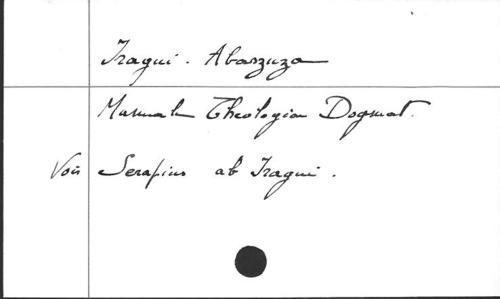 Iragui. Abarzuza
Manuale Theologiae Dogmat.
Voir Serapius ab Iragui.